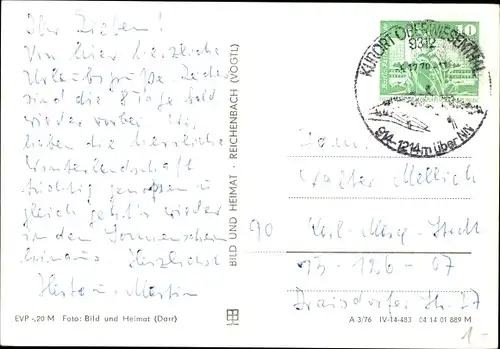 Ihr Lieben!
Von hier herzliche
Urlaubsgrüße. Leider
sind die 8 Tage bald
wieder vorbei. Wir
haben die herrliche
Winterlandschaft
tüchtig genossen u.
gleich geht's wieder
in den Sonnenschein
hinaus. Herzlichst
Herta u. Martin
EVP -,20 M Foto: Bild und Heimat (Darr)
BILD UND HEIMAT · REICHENBACH (VOGTL)
10
KURORT OBERWIESENTHAL
9312
914-1214m über NN
Fam.
Walter
90 Karl-Marx-Stadt
13 - 126 - 67
Draisdorfer Str. 27
A 3/76 IV-14-483 04 14 01 889 M
1.-